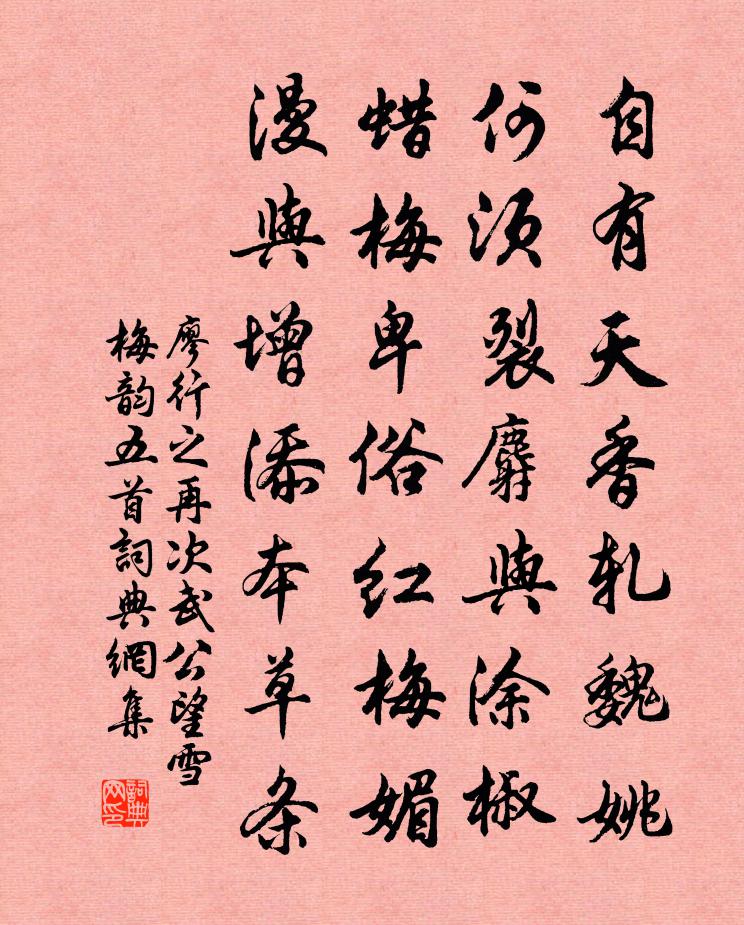 自有天香轧魏姚
何须裂麝与涂椒
蜡梅卑俗红梅媚
漫与增添本草条
廖行之再次武公望雪
梅韵五首词典网集
词典网印